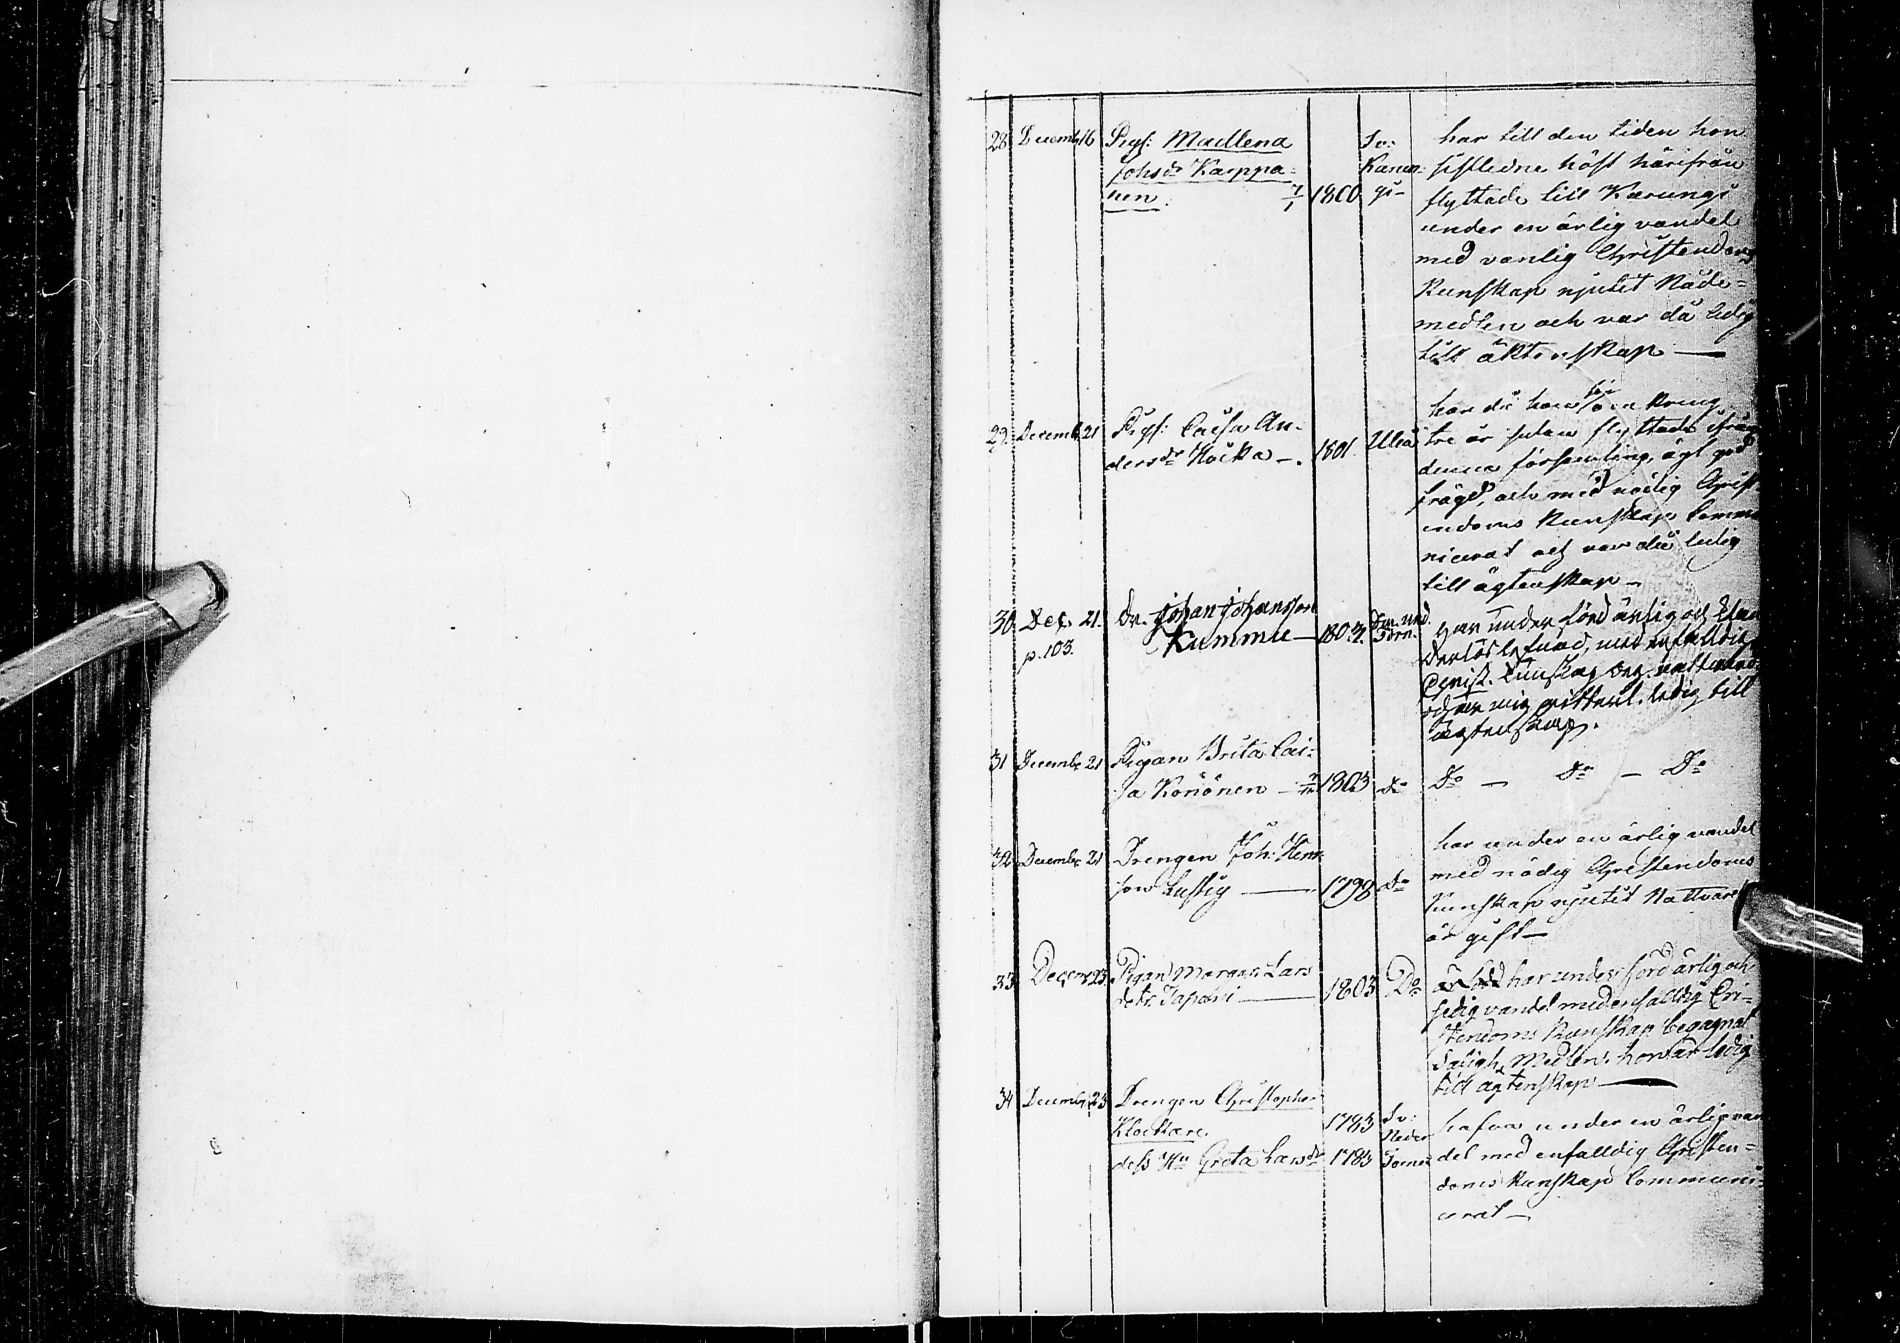 28 Decemb 16 Pig: Madlena
Johsdr Karppa-
nen. 7/1 1800 Sv: Karun-
gi-
har till den tiden hon
sistledne höst härifrån
flyttade till Karungi
under en ärlig vandel
med vanlig Christendoms
Kunskap njutit Nåde-
medlen och var då ledig
till äktenskap —
29. Decemb 21 Pig: Caisa An-
dersdr Kocka —. 1801 Uleå
har då hon för om kring
tre år sedan flyttade ifrån
denna församling, ägt god
frägd, och med nödig Christ
endoms Kunskap Commu
nicerat och var då ledig
till ägtenskap —
30. Dec. 21. Dr. Johan Johansson
p. 103. Kummu — 1803.
Har under förd ärlig och
med enfaldig
Christ. Kunskap
ledig till
ägtenskap.
31 Decembr 21 Pigan Brita Cai-
sa Kononen — 1803 Do Do — Do — Do
32 Decembr 21 Drengen Joh: Henr
son Lustig — 1798 Do
har under en ärlig vandel
med nödig Christendoms
Kunskap njutit Nattvard
är gift —
33 Decemb 23. Pigan Margar: Lars
dotr. Tapani — 1803 Do
har under förd ärlig och
sedig vandel med enfaldig Cri-
stendoms Kunskap begagnat
Saligh. Medlen. hon är ledig
till ägtenskap —
34 Decembr 23 Drengen Christopher
Klockare 1783 Sv:
Neder
dess Hu Greta Larsdr 1783 Torneå
hafva under en ärlig van
del med enfalldig Christen-
doms Kunskap Communi-
cerat —